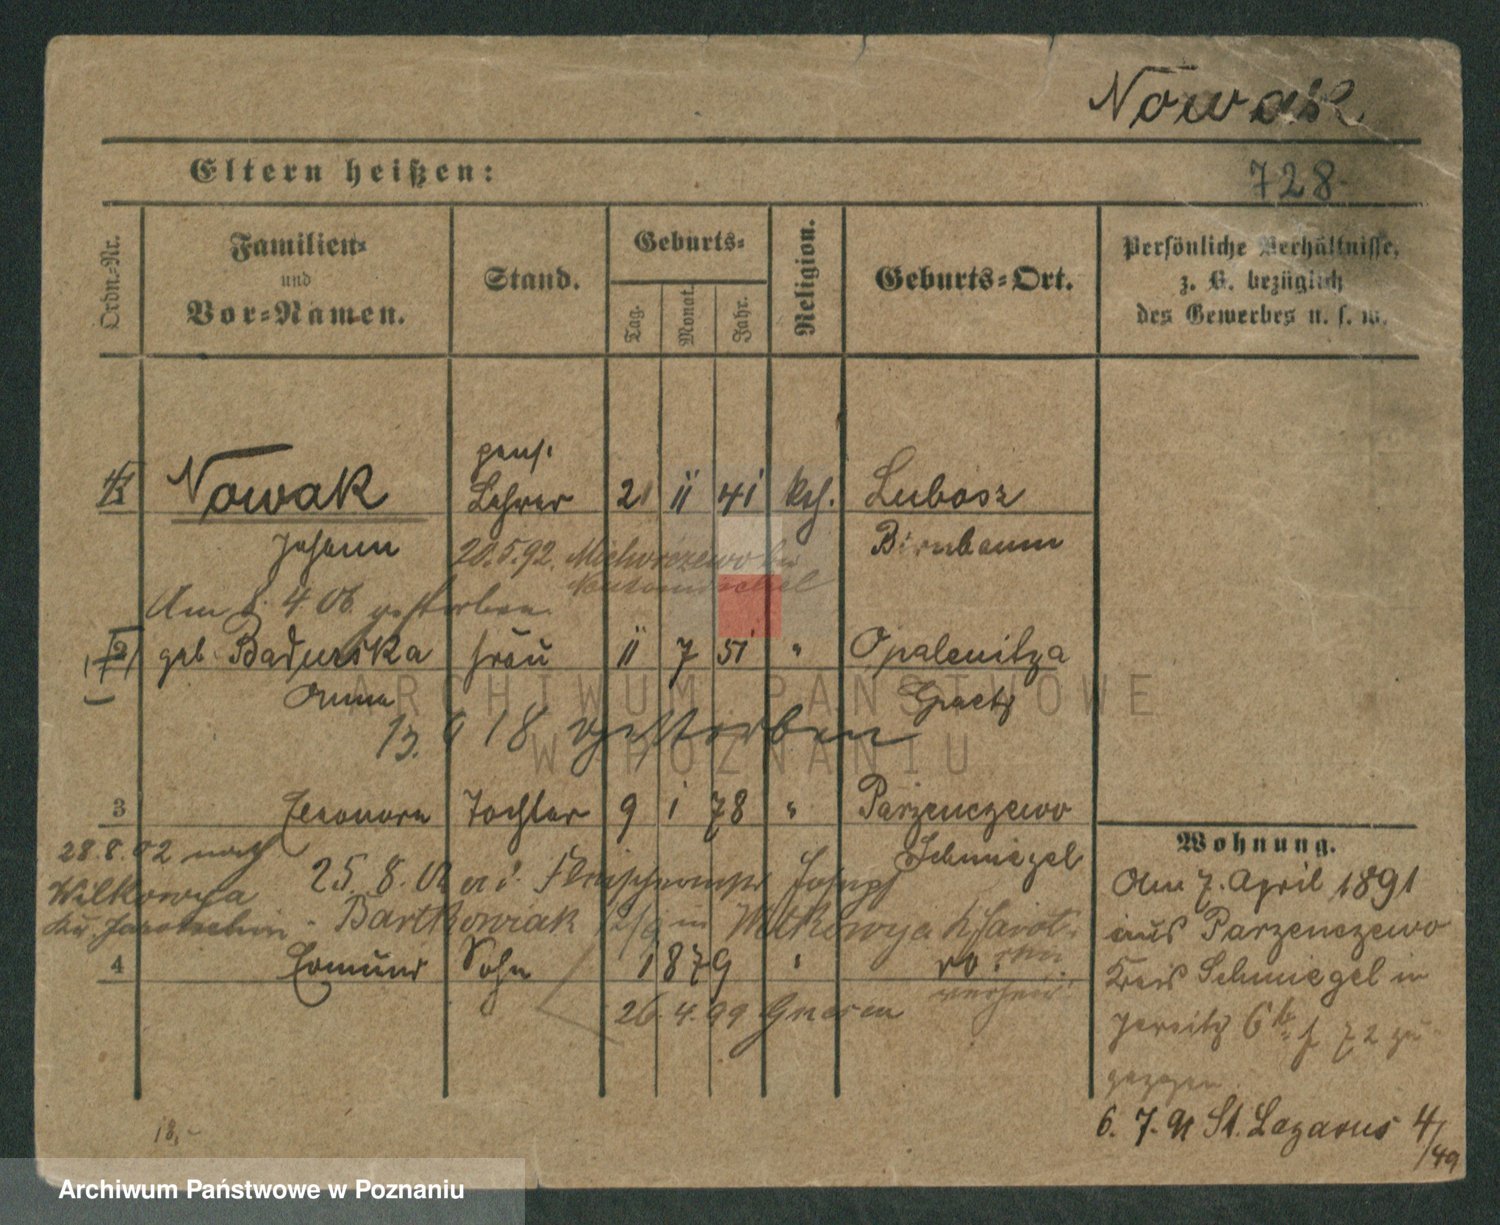 Nowak
Eltern heißen:
728
Ordn.-Nr.
Familien-
und
Vor-Namen.
Stand.
Geburts-
Tag.
Monat.
Jahr.
Religion.
Geburts-Ort.
Persönliche Verhältnisse,
z. B. bezüglich
des Gewerbes u. s. w.
pens.
1 Nowak Lehrer 21 11 41 kath. Lubosz
Johann Birnbaum
20.5.92. Michorzewo bei
Neutomischel
Am 8. 4 06 gestorben
2 geb. Badurska Frau 11 7 51 " Opalenitza
Anna Graetz
13. 9 18 gestorben
3 Eleonora Tochter 9 1 78 " Parzenczewo
Schmiegel
28.8.02 nach
Wilkowya
Kr. Jarotschin
25. 8. 02 Joseph
Bartkowiak in Wilkowya
verheir.
4 Edmund Sohn 1879 " do.
26. 4. 99 Gnesen
Wohnung.
Am 7. April 1891
aus Parzenczewo
Kreis Schmiegel in
Jersitz 72 zu-
gezogen
6. 7. 91 St. Lazarus 4/49
18,-
ARCHIWUM PAŃSTWOWE
W POZNANIU
Archiwum Państwowe w Poznaniu